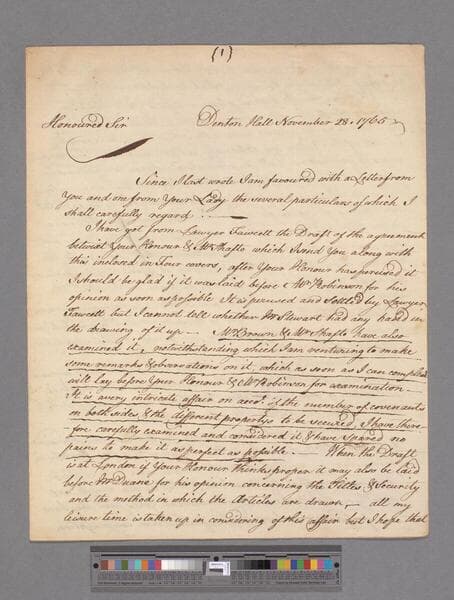 (1)
Honoured Sir Denton Hall November 28. 1765
Since I last wrote I am favoured with a Letter from
You and one from Your Lady the several particulars of which I
shall carefully regard.
I have got from Lawyer Fawcett the Draft of the agreement
betwixt Your Honour & Mr Shafto which I send You along with
this inclosed in Four covers, after Your Honour has perused it
I should be glad if it was laid before Mr Robinson for his
opinion as soon as possible It is perused and Settled by Lawyer
Fawcett but I cannot tell whether Mr Stewart had any hand in
the drawing of it up — Mr Brown & Mr Shafto have also
examined it, notwithstanding which I am venturing to make
some remarks & observations on it, which as soon as I can compleat
will lay before Your Honour & Mr Robinson for examination
It is a very intricate affair on acco.t of the number of covenants
on both sides & the different propertys to be secured, I have there-
fore carefully examined and considered it & have Spared no
pains to make it as perfect as possible. When the Draft
is at London if Your Honour thinks proper it may also be laid
before Mr Duane for his opinion concerning the Titles & Security
and the method in which the Articles are drawn, — all my
leisure time is taken up in considering of this affair but I hope that